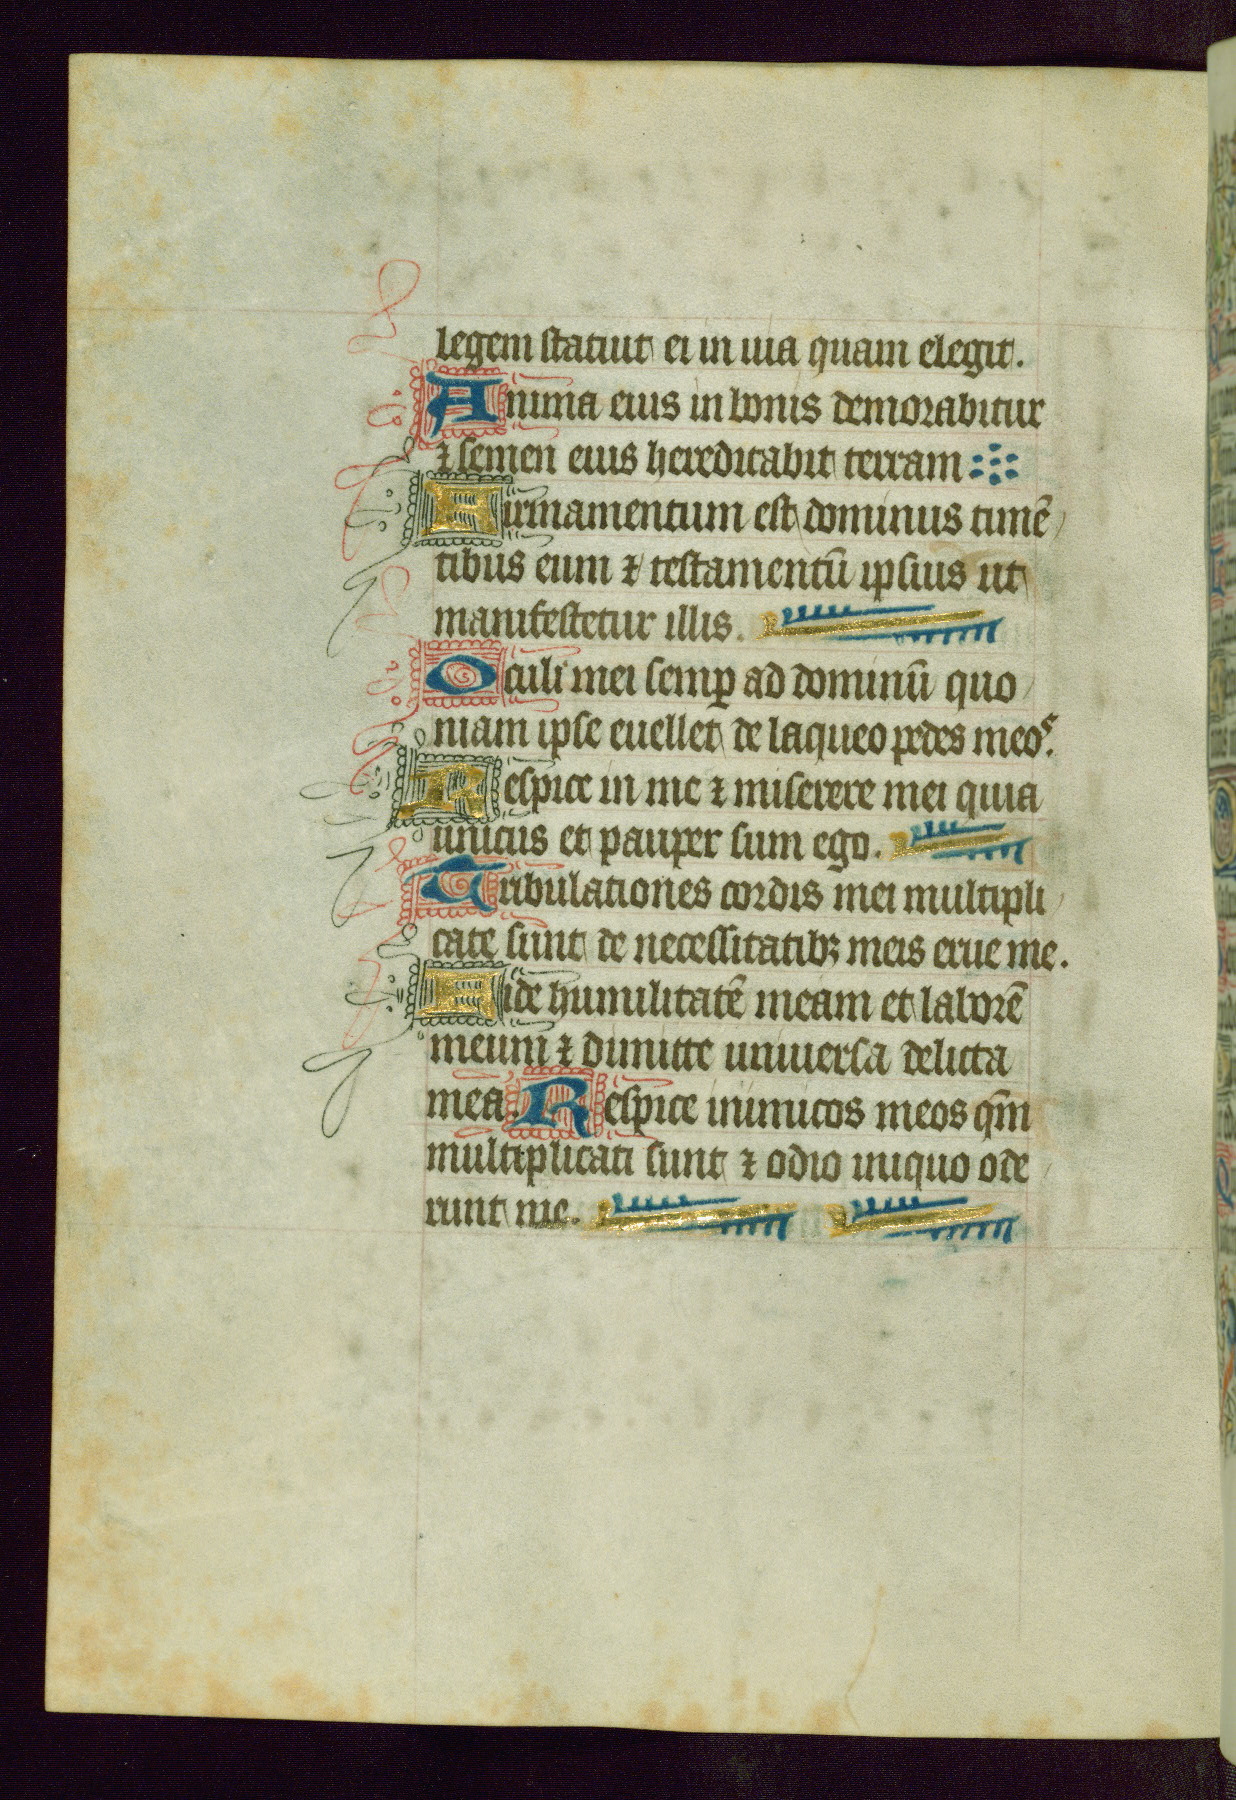 legem statuit ei in uia quam elegit.
Anima eius in bonis demorabitur
⁊ semen eius hereditabit terram
Firmamentum est dominus timē
tibus eum ⁊ testamentū ipsius ut
manifestetur illis.
Oculi mei semꝑ ad dominū quo
niam ipse euellet de laqueo pedes meos.
Respice in me ⁊ miserere mei quia
unicus et pauper sum ego.
Tribulationes cordis mei multipli
cate sunt de necessitatibꝫ meis erue me.
Vide humilitatē meam et laborē
meum ⁊ dimitte uniuersa delicta
mea. Respice inimicos meos qm̄
multiplicati sunt ⁊ odio iniquo ode
runt me.